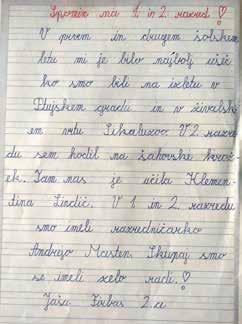 Spomin na 1. in 2. razred!
V prvem in drugem šolskem
letu mi je bilo najbolj všeč
ko smo bili na izletu v
Ptujskem gradu in v živalsk
em vrtu Sikaluzoo. V 2. razre
du sem hodil na šahovske krož
ek. Tam nas je učila Klemen
tina Lindič. V 1 in 2. razredu
smo imeli razredničarko
Andrejo Masten. Skupaj smo
se imeli zelo radi.
Jaša Forbas 2.a